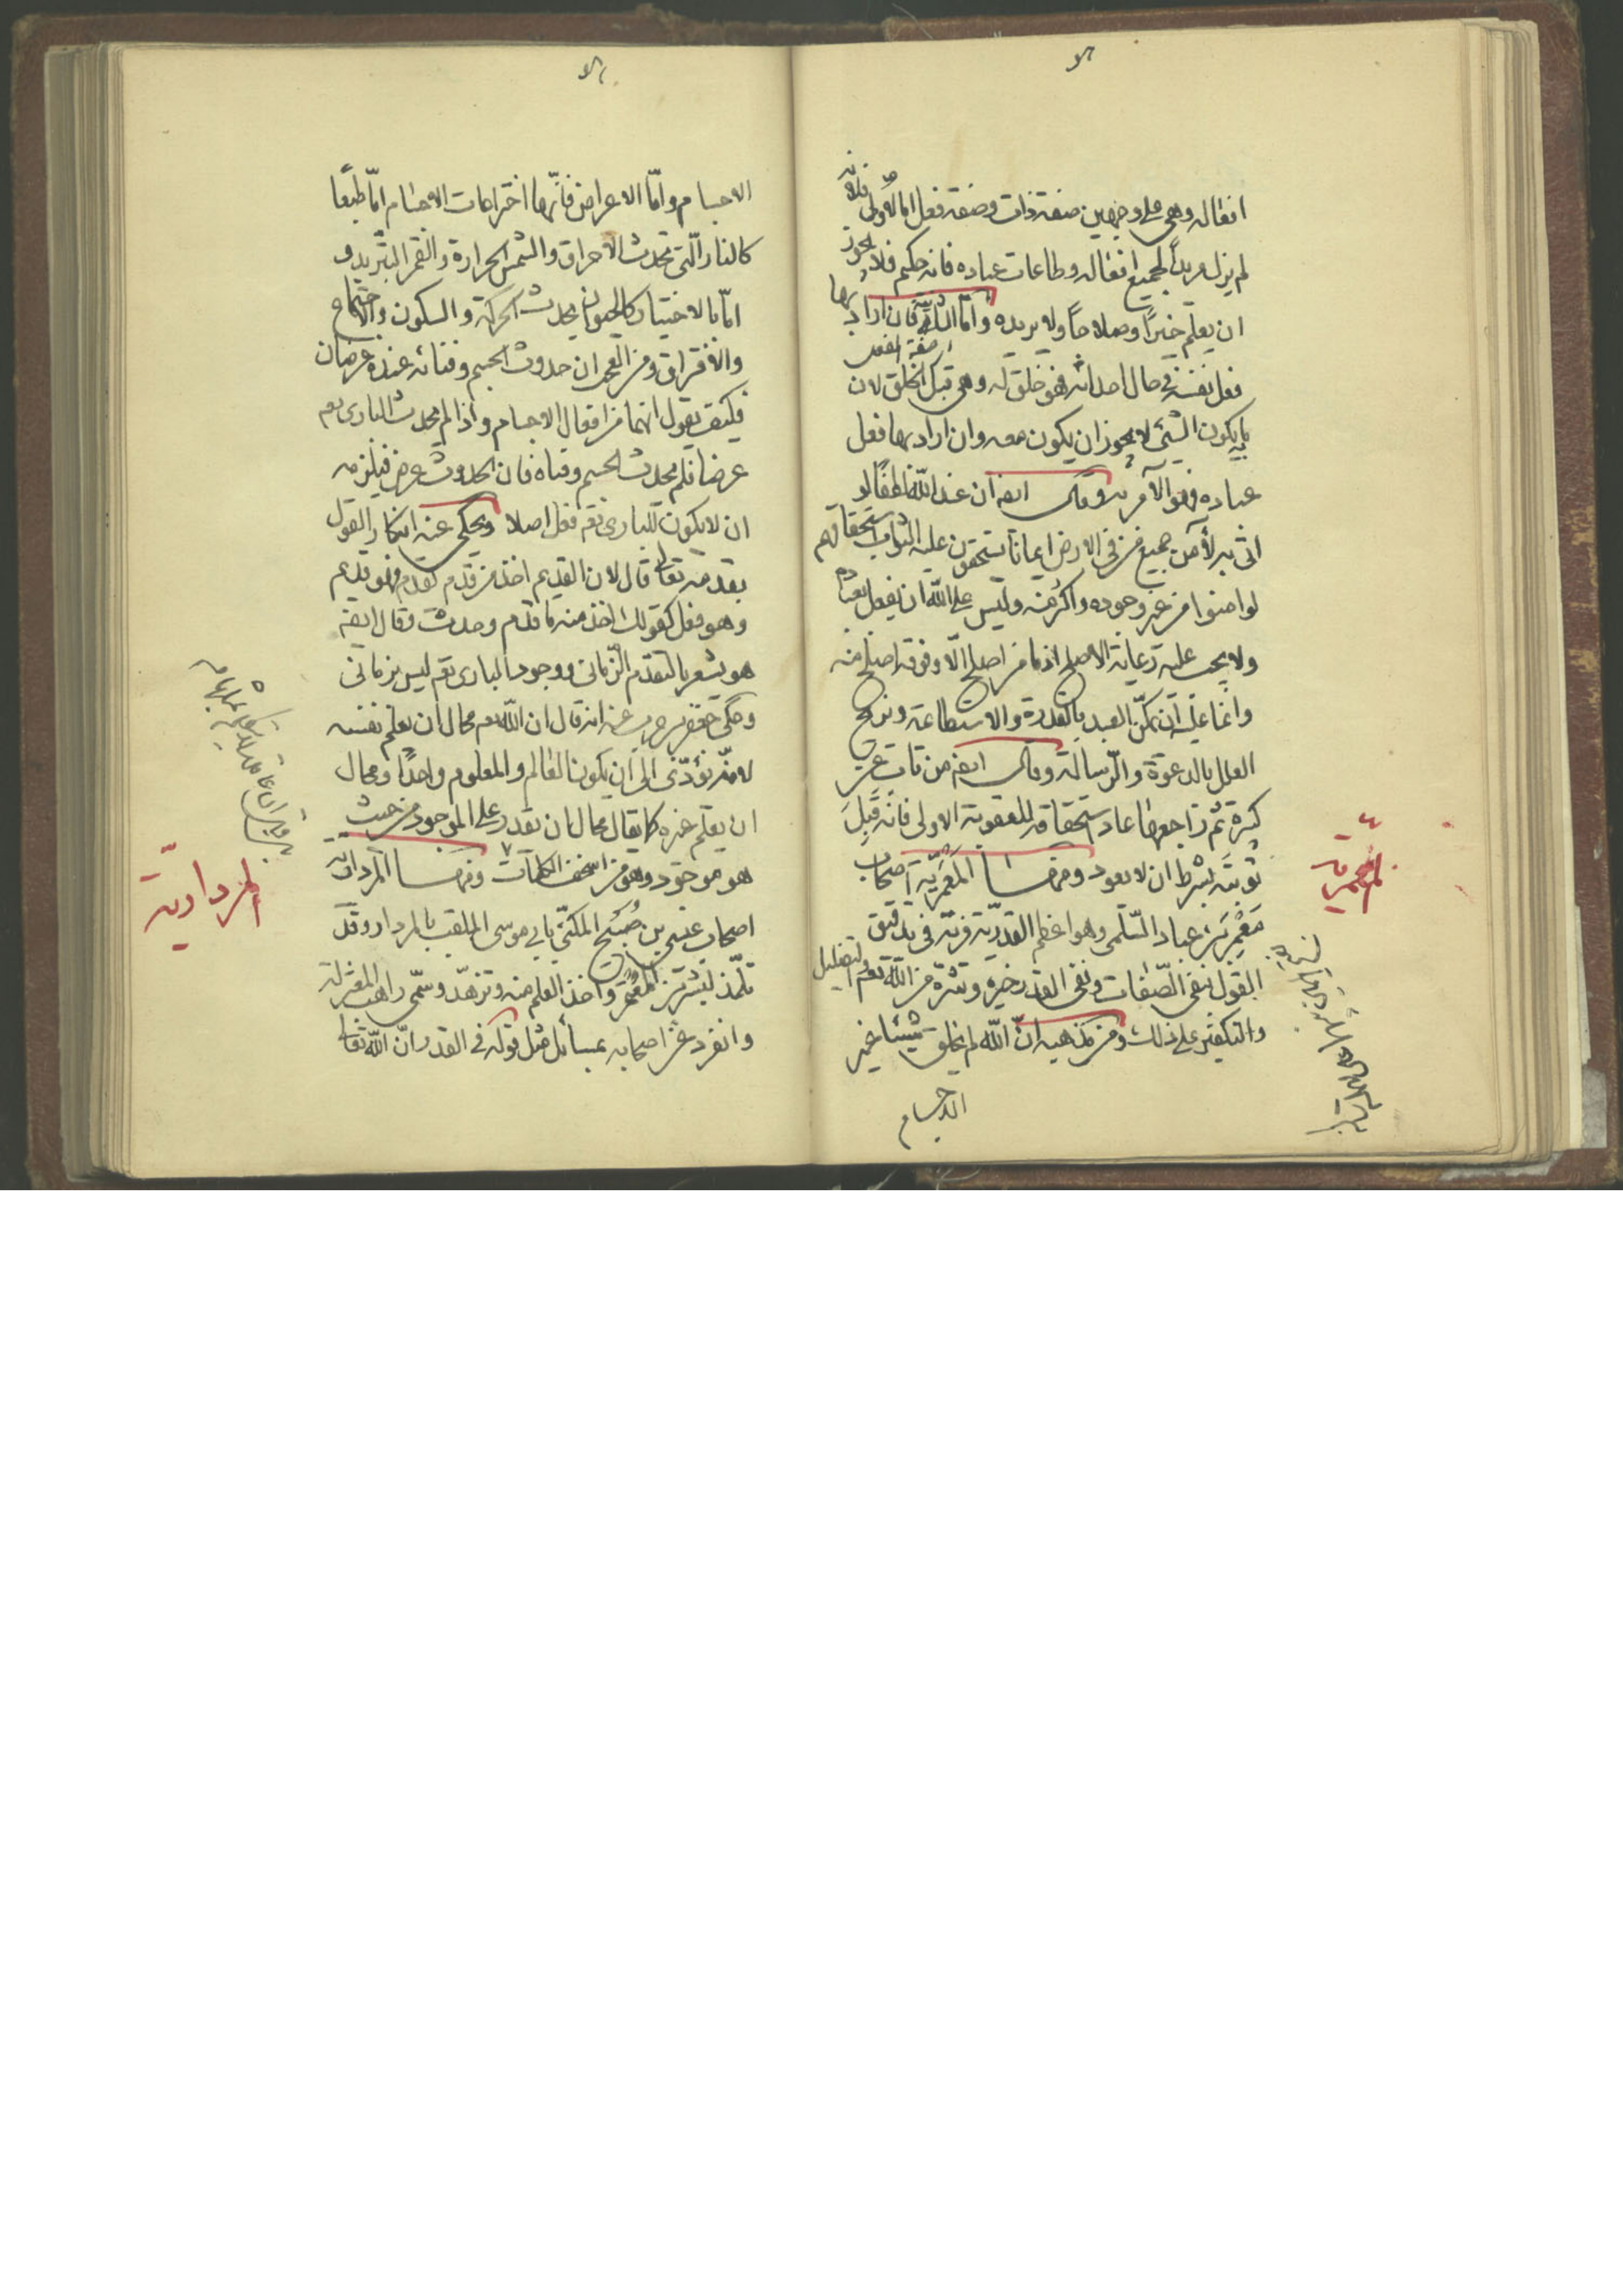 افعاله وهى على وجهين صفة ذات وصفة فعل اما الاولى فلانه
لم يزل مريداً لجميع افعاله وطاعات عباده فانه حكيم فلا يجوز
ان يعلم خيراً وصلاحاً ولا يريده وامّا الثانية فان اراد بها
صفة الفعل
فعل نفسه فى حال احداثه فهو خلق له وهى قبل الخلق لان
ما به يكون الشئ لا يجوز ان يكون معه وان اراد بها فعل
عباده فهو الآمر به وقال ايضا ان عند الله لطفا لو
اتى به لآمن جميع من فى الارض ايمانا يستحقون عليه الثواب استحقاقهم
لو امنوا من غير وجوده واكثر منه وليس على الله ان يفعل بعباده
ولا يجب عليه رعاية الاصلح اذ ما من اصلح الّا وفوقه اصلح منه
وانما عليه ان يمكّن العبد بالقدرة والاستطاعة ويزيح
العلل بالدعوة والرّسالة وقال ايضا من تاب عن
كبيرة ثم راجعها عاد استحقاقه للعقوبة الاولى فانه قُبِلَ
توبته بشرط ان لا يعود ومنها المَعمَريّة اصحاب
مَعْمَر بن عباد السّلمى وهو اعظم القدرية فرية فى تدقيق
القول بنفى الصّفات ونفى القدر خيره وشره من الله تعم والتضليل
والتكفير على ذلك ومن مذهبه انّ الله لم يخلق شيئا غير
الاجسام
المعمرية
الاجسام وامّا الاعراض فانّها اختراعات الاجسام امّا طبعًا
كالنار الّتى تحدث الاحراق والشمس الحرارة والقمر التبريد و
امّا بالاختيار كالحيوان يحدث الحركة والسكون والاجتماع
والافتراق ومن العجب ان حدوث الجسم وفنائه عنده عرضان
فكيف يقول انهما من افعال الاجسام واذا لم يحدث البارى تعم
عرضا فلم يحدث الجسم وفناه فان الحدوث عرض فيلزمه
ان لا يكون للبارى تعم فعل اصلا ويحكى عنه انكار القول
بقدمه تعالى قال لان القديم اخذ من قدم يقدم فهو قديم
وهو فعل كقولك اخذ منه ما قدم وحدث وقال ايضا
هو يشعر بالتقدم الزّمانى ووجود البارى تعم ليس بزمانى
وحكى جعفر بن حرب عنه انه قال ان الله تعم محال ان يعلم نفسه
لانه يؤدّى الى ان يكون العالم والمعلوم واحدًا ومحال
ان يعلم غيره كما يقال محال ان يقدر على الموجود من حيث
هو موجود وهو من اسخف الكلمات ومنها المردارية
اصحاب عيسى بن صُبَيح المكنّى بابى موسى الملقب بالمردار وقد
تلمّذ لبشر بن المُعتَمِر واخذ العلم منه وتزهّد وسمّى راهب المعتزلة
وانفرد عن اصحابه بمسائل مثل قوله فى القدر انّ الله تعالى
المردارية